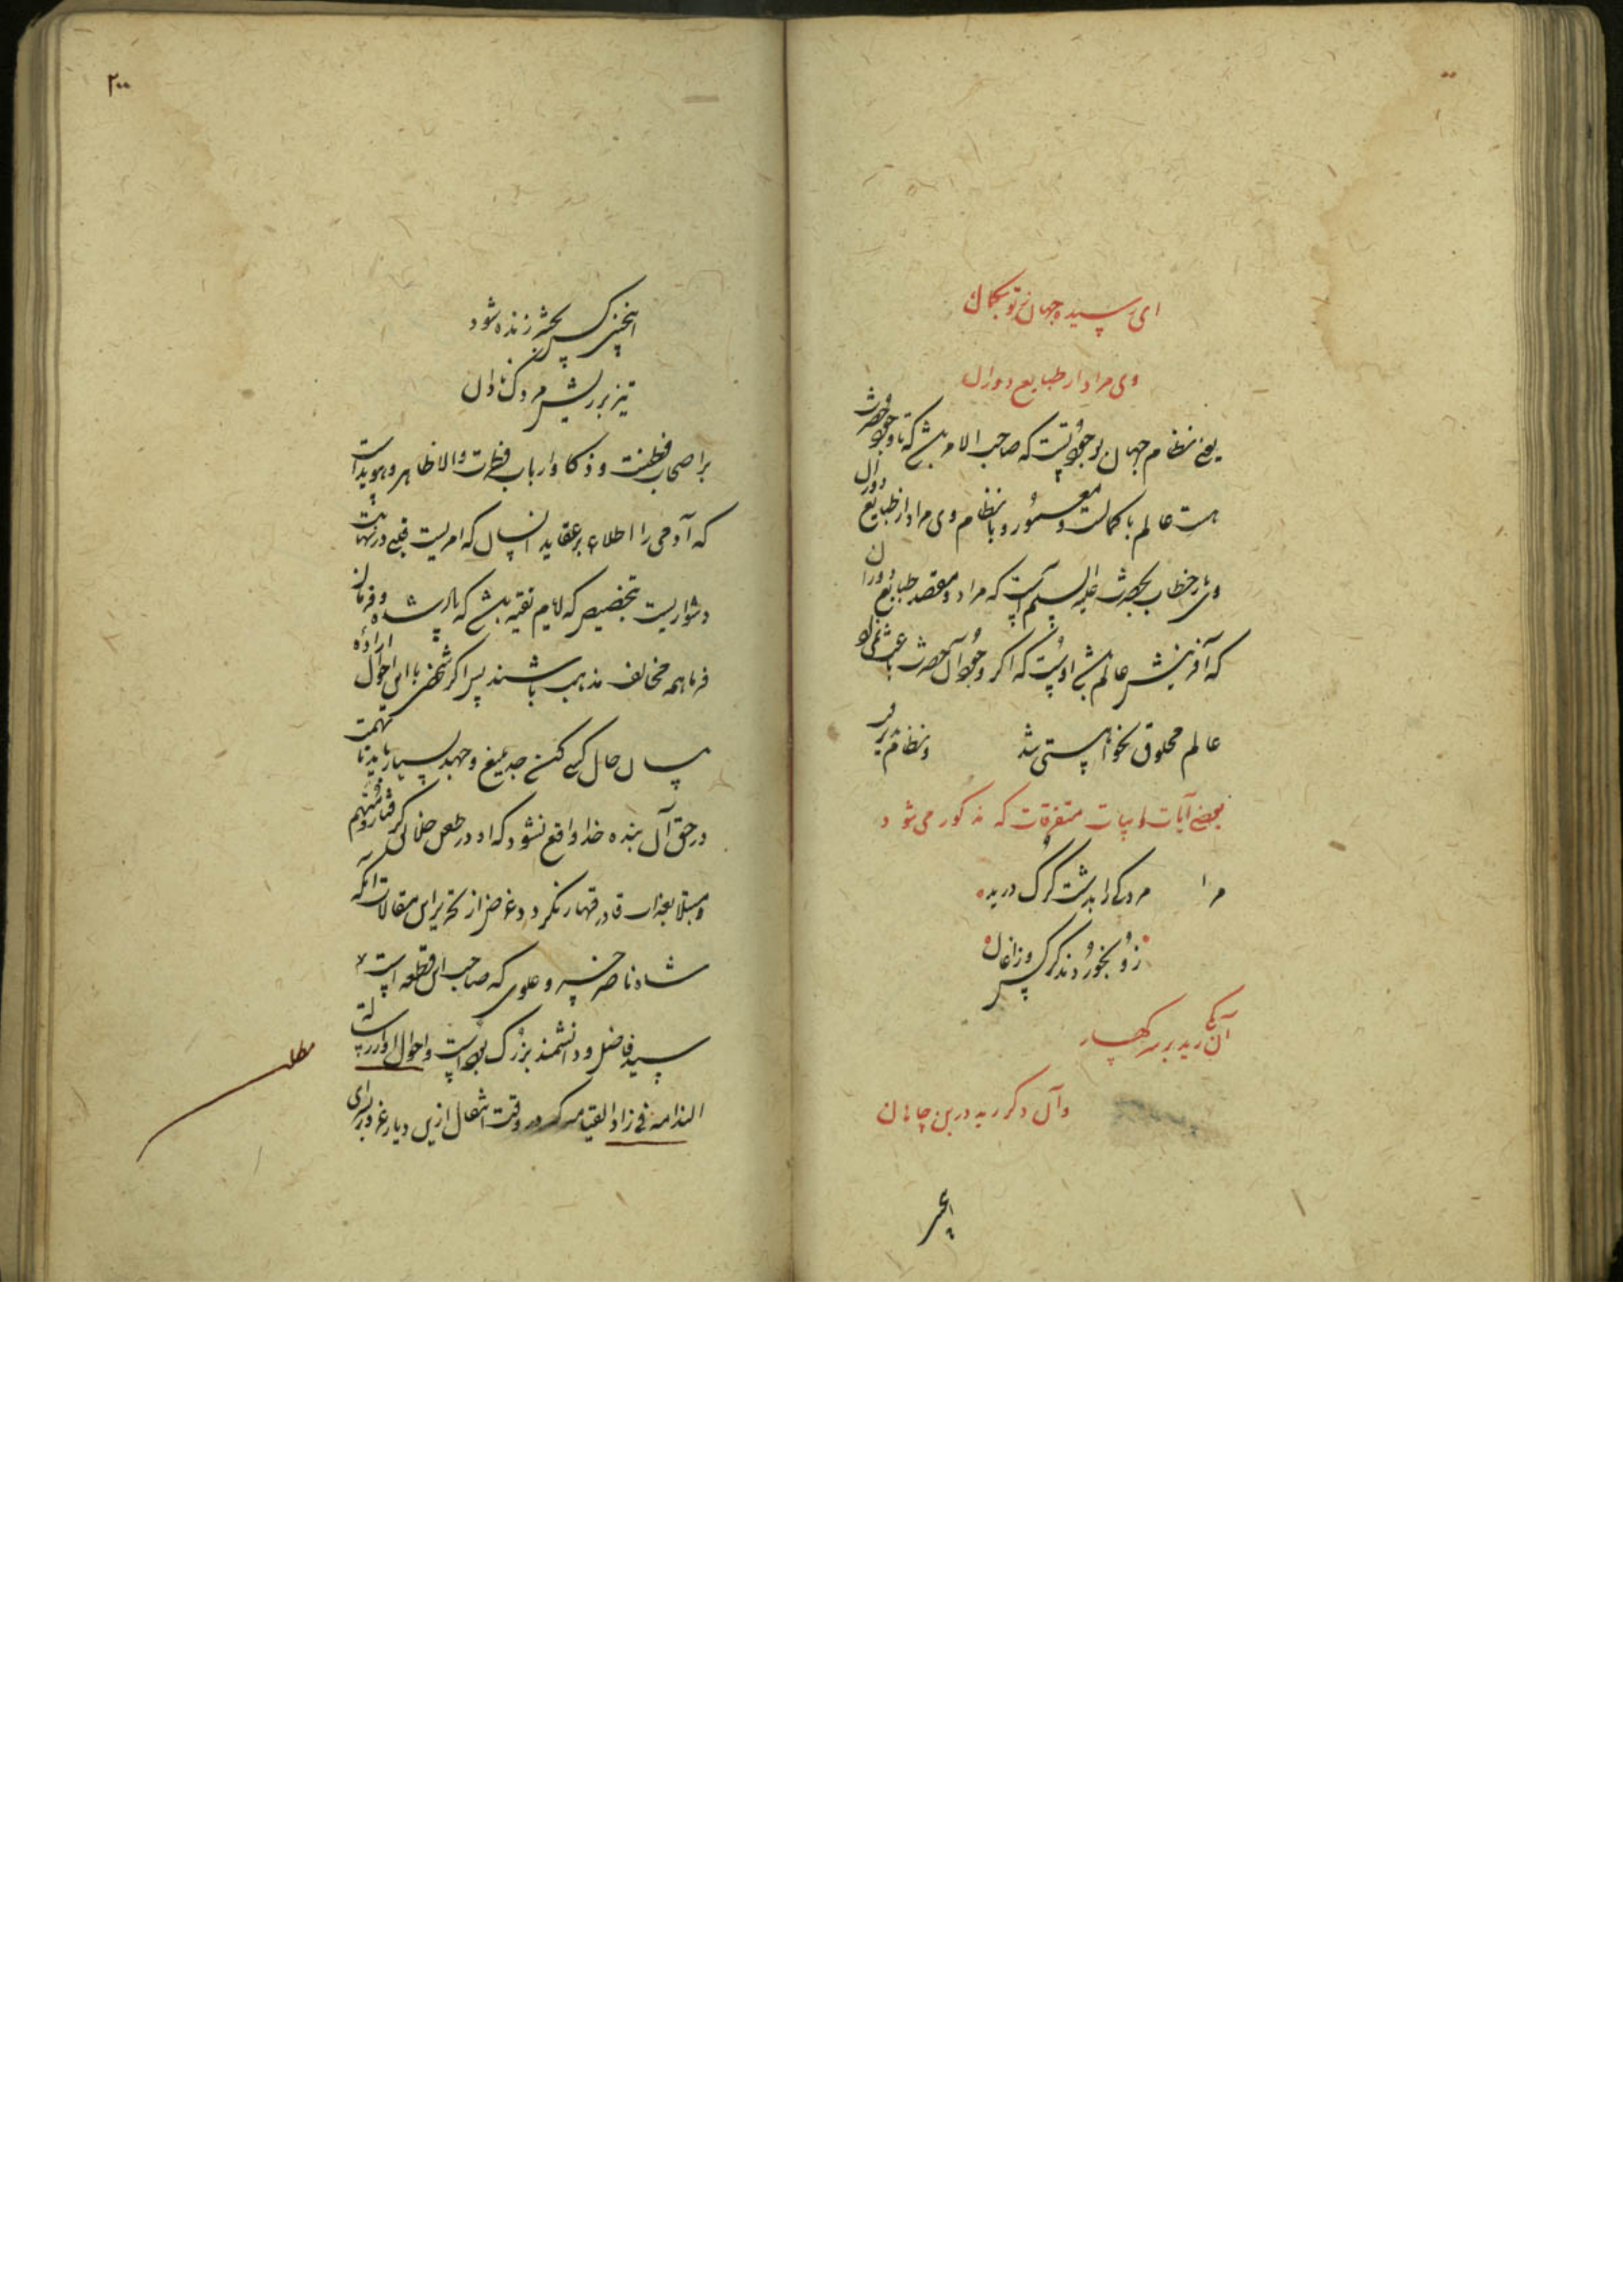 ای رسیده جهان ز تو بکمال
وی مراد از طبایع دوران
یعنی نظام جهان بوجود تست که صاحب الامر باشی که تا وجود حضرت
هست عالم با کمالست و معمور و با نظام وی مراد از طبایع دوران
وی باز خطاب بحضرت علیه السلم است که مراد و مقصد طبایع دوران
که آفرینش عالم باشد اوست که اگر وجود آن حضرت باعث نمی بود
عالم مخلوق نخواستی شد و نظام
بعضی آیات ابیات متفرقات که مذکور می شود
مر ا مردکی را بدشت گرگ درید
زو بخوردند کرکس و زاغان
آن یکی رید بر سر کهسار
وآن دگر رید در بن چاهان
اینچنین
۲۰۰
اینچنین کس بحشر زنده شود
تیز بر ریش مردک نادان
بر اصحاب فطنت و ذکا و ارباب فطرت والا ظاهر و هویداست
که آدمی را اطلاع بر عقاید انسان که امریست قلبی در نهایت
دشواریست بتخصیص که لایم تقیه باشد که پادشاه و فرمان
فرما همه مخالف مذهب باشند پس اگر شخصی با این احوال اراده
پرسان حال کسی کند جد بلیغ و جهد بسیار باید تا تهمت
در حق آن بنده خدا واقع نشود که او در طعن خدا گرفتار و متهم
و مبتلا بعذاب قادر قهار نگردد و غرض از تحریر این مقالات آنکه
شاه ناصر خسرو علوی که صاحب این قطعه است
سید فاضل و دانشمند بزرگ بوده است و احوال او در رساله
الندامه فی زاد القیامه که در وقت انتقال ازین دیار غرور برای
مطلب